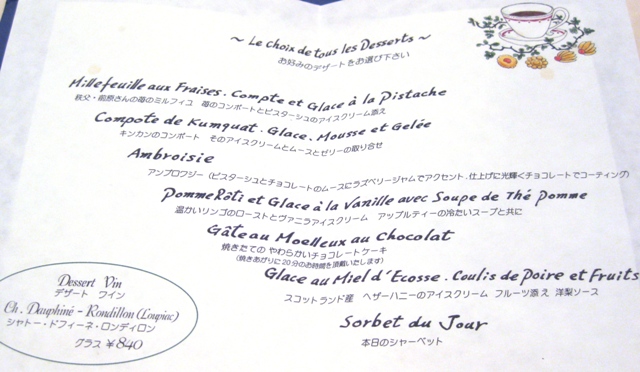 ~ Le Choix de tous les Desserts ~
お好みのデザートをお選び下さい
Millefeuille aux Fraises. Compte et Glace à la Pistache
秩父・ さんの苺のミルフィユ 苺のコンポートとピスタージュのアイスクリーム添え
Compote de Kumquat. Glace. Mousse et Gelée
キンカンのコンポート そのアイスクリームとムースとゼリーの取り合せ
Ambroisie
アンブロワジー (ピスタージュとチョコレートのムースにラズベリージャムでアクセント.仕上げに光輝くチョコレートでコーティング)
Pomme Rôti et Glace à la Vanille avec Soupe de Thé Pomme
温かいリンゴのローストとヴァニラアイスクリーム アップルティーの冷たいスープと共に
Gâteau Moelleux au Chocolat
焼きたての やわらかいチョコレートケーキ
(焼きあがりに20分のお時間を頂戴いたします)
Glace au Miel d'Ecosse. Coulis de Poire et Fruits
スコットランド産 ヘザーハニーのアイスクリーム フルーツ添え 洋梨ソース
Sorbet du Jour
本日のシャーベット
Dessert Vin
デザート ワイン
Ch. Dauphiné - Rondillon (Loupiac)
シャトー・ドフィーネ・ロンディロン
グラス ¥840